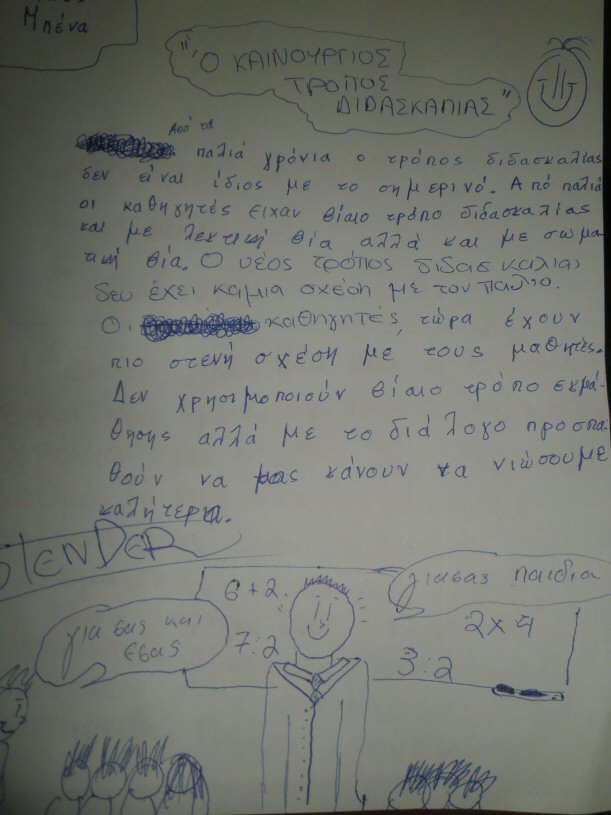 Μπένα
"Ο ΚΑΙΝΟΥΡΓΙΟΣ
ΤΡΟΠΟΣ
ΔΙΔΑΣΚΑΛΙΑΣ"
Από τα
παλιά χρόνια ο τρόπος διδασκαλίας
δεν είναι ίδιος με το σημερινό. Από παλιά
οι καθηγητές είχαν βίαιο τρόπο διδασκαλίας
και με λεκτική βία αλλά και με σωμα
τική βία. Ο νέος τρόπος διδασκαλίας
δεν έχει καμια σχέση με τον παλιο.
Οι καθηγητές, τώρα έχουν
πιο στενή σχέση με τους μαθητές.
Δεν χρησιμοποιούν βίαιο τρόπο εκμά-
θησης αλλά με το διάλογο προσπα
θούν να μας κάνουν να νιώσουμε
καλήτερα.
6+2.
γιασας παιδια
για σας και
εσας
7:2
2x4
3:2